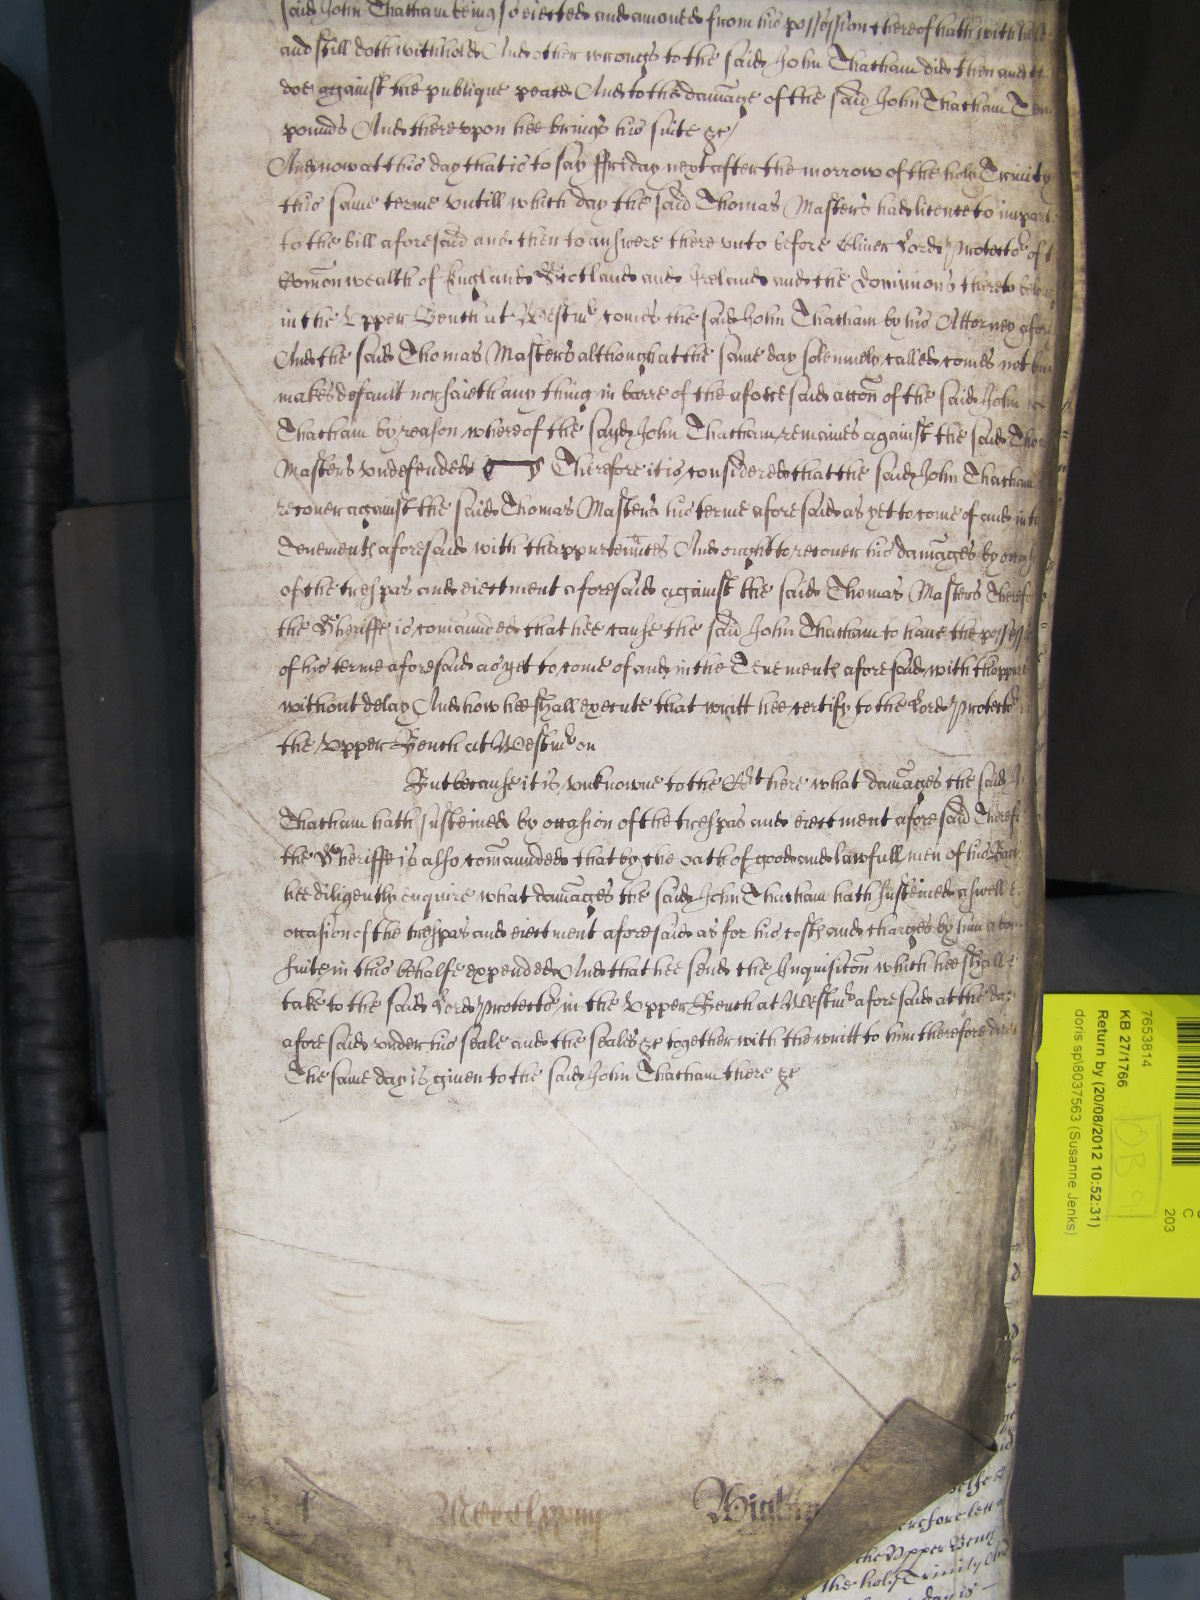 said John Thatham being so eiected and amoved from his possession thereof hath withheld
and still doth withhold And other wrongs to the said John Thatham did then and
doe against the publique peace And to the damage of the said John Thatham Ten
pounds And thereupon hee brings his suite &c
And now at this day that is to say ffriday next after the morrow of the holy Trinity
this same terme untill which day the said Thomas Masters had licence to imparl
to the bill aforesaid and then to answere there unto before Oliver Lord Protector of t
Com̄onwealth of England Scotland and Ireland and the Dominions thereto
in the Upper Bench at Westmr comes the said John Thatham by his Attorney afore
And the said Thomas Masters although at the same day solemnely called comes not but
makes default nor saieth any thing in barre of the aforesaid acc̄on of the said John
Thatham by reason whereof the sayd John Thatham remaines against the said Tho
Masters undefended Therefore it is considered that the said John Thatham
recover against the said Thomas Masters his terme aforesaid as yet to come of and in th
Tenements aforesaid with thappurten̄ces And ought to recover his dam̄ages by
of the trespas and eiectment aforesaid against the said Thomas Masters Theref
the Sheriffe is com̄anded that hee cause the said John Thatham to have the possess
of his terme aforesaid as yet to come of and in the Tenements aforesaid with thappur
without delay And how hee shall execute that writt hee certify to the Lord Protector
the Upper Bench at Westmr on
But because it is unknowne to the Cort here what dam̄ages the said J
Thatham hath susteined by occasion of the trespas and eiectment aforesaid Theref
the Sheriffe is also com̄aunded that by the oath of good and lawfull men of his
hee diligently enquire what dam̄ages the said John Thatham hath susteined aswell
occasion of the trespas and eiectment aforesaid as for his costs and charges by him about
suite in this behalfe expended And that hee send the Inquisic̄on which hee shall
take to the said Lord Protector in the Upper Bench at Westmr aforesaid at the day
aforesaid under his seale and the seales &c together with the writt to him therefore
The same day is given to the said John Thatham there &c
7653814
KB 27/1766
Return by (20/08/2012 10:52:31)
doris sp\8037563 (Susanne Jenks)
C
203
erefore lett
the Upper Benc
the holy Trinity
day is